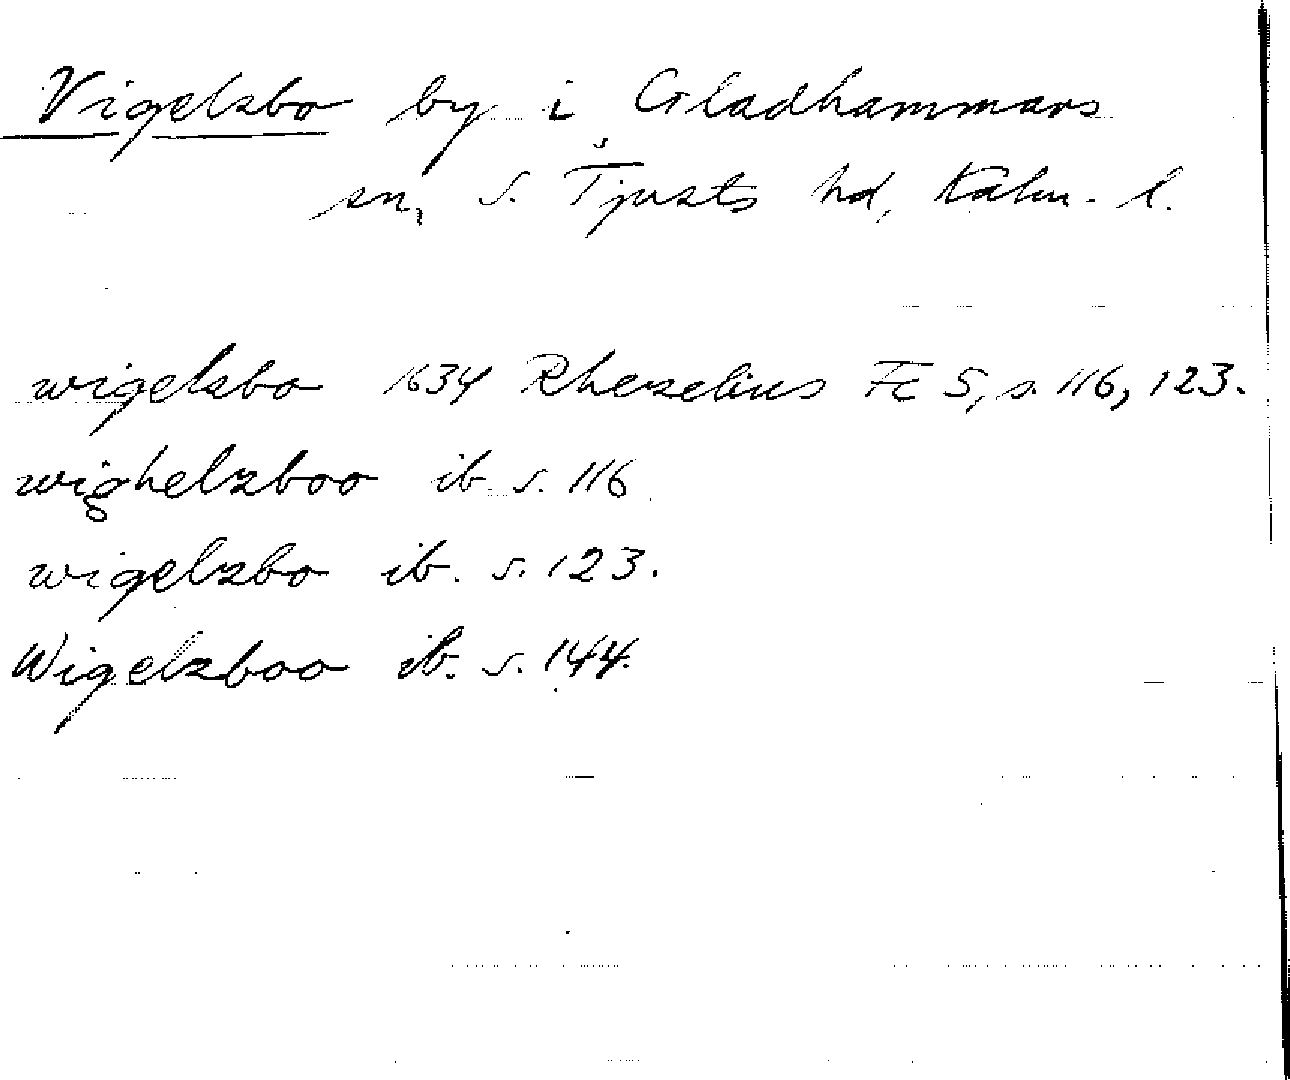 Vigelsbo by i Gladhammars
sn, S. Tjusts hd, Kalm. l.
wigelsbo 1634 Rhezelius Fc 5, s. 116, 123.
wighelzboo ib. s. 116
wigelzbo ib. s. 123.
Wigelzboo ib. s. 144.